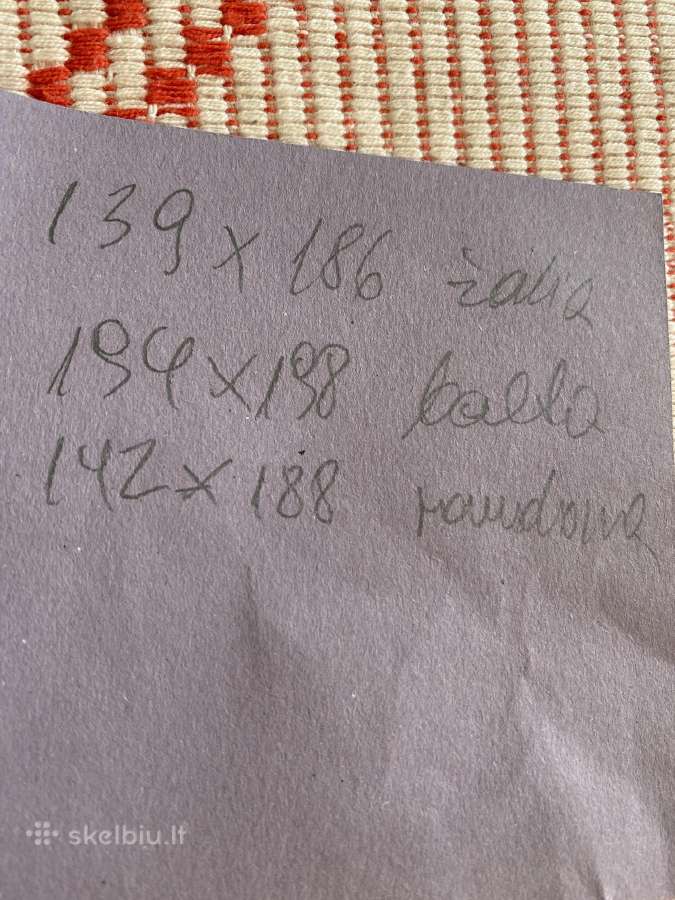 139 x 186 žalia
194 x 198 balta
142 x 188 raudona
skelbiu.lt